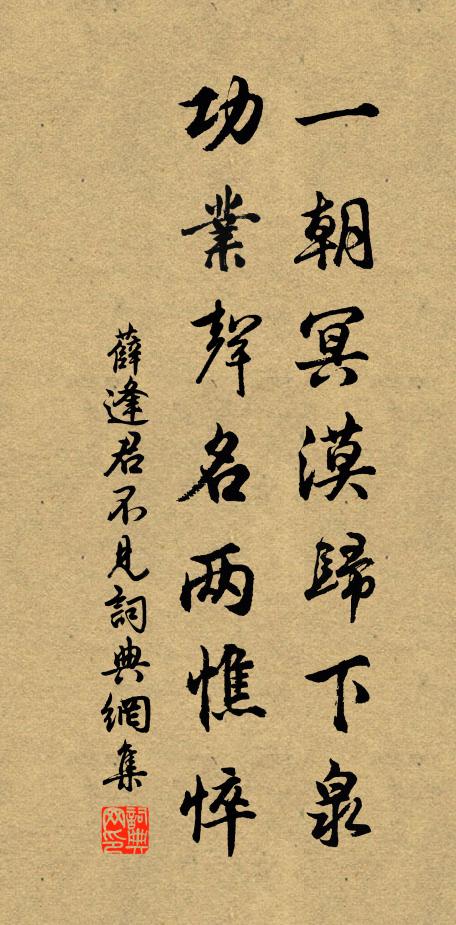 一朝冥漠歸下泉
功業聲名两憔悴
薛逢君不見詞典網集
詞典網印